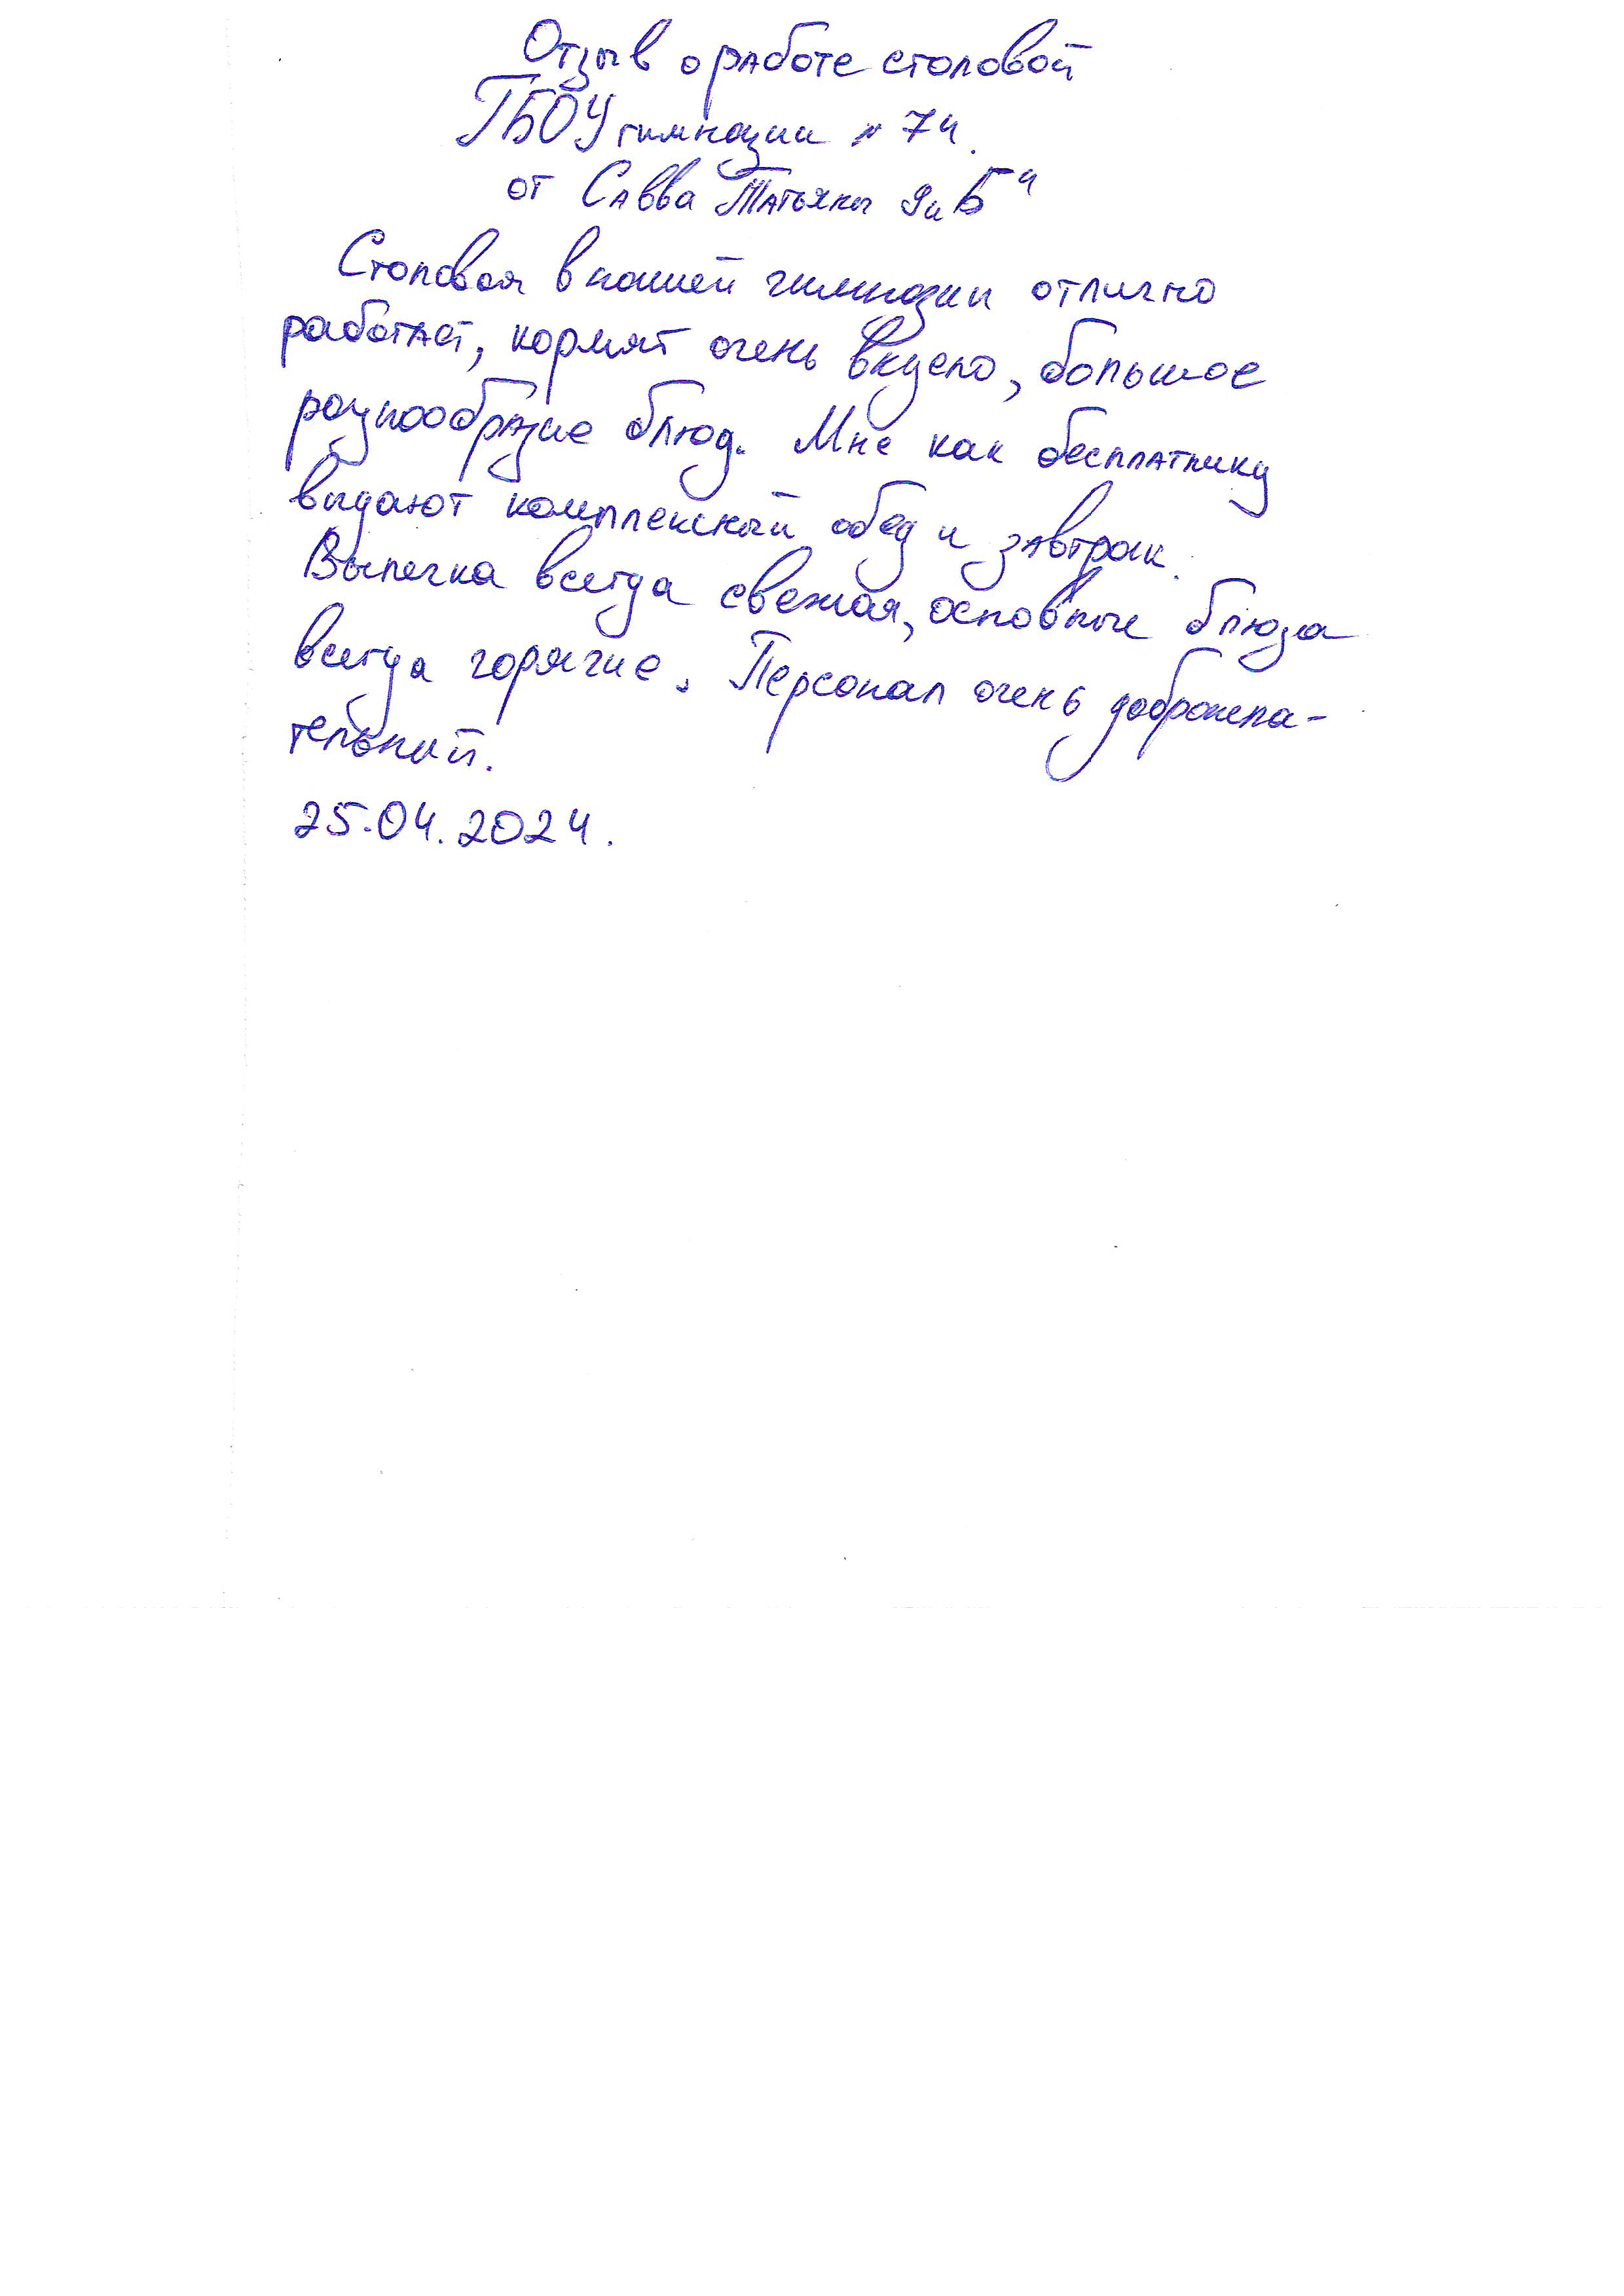 Отзыв о работе столовой
ГБОУ гимназии № 74.
от Савва Татьяны 9 „Б"
Столовая в нашей гимназии отлично
работает, кормят очень вкусно, большое
разнообразие блюд. Мне как бесплатнику
выдают комплексный обед и завтрак.
Выпечка всегда свежая, основные блюза
всегда горячие. Персонал очень доброжела-
тельный.
25.04.2024.